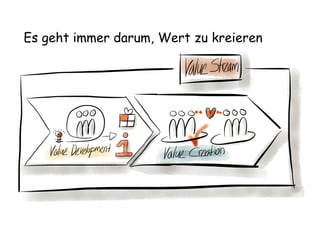 Es geht immer darum, Wert zu kreieren
Value Stream
1
Value Development
Value Creation